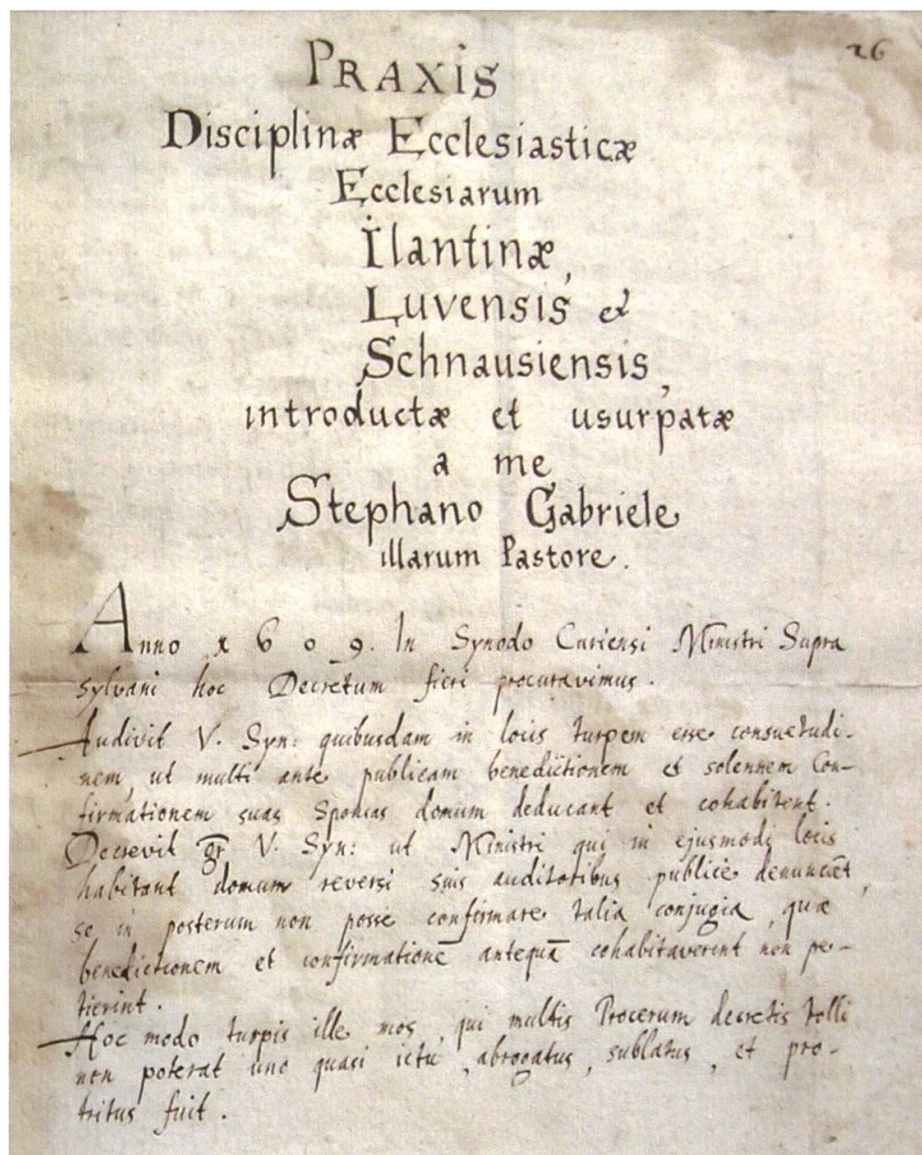 26
PRAXIS
Disciplinæ Ecclesiasticæ
Ecclesiarum
Ilantinæ,
Luvensis et
Schnausiensis,
introductæ et usurpatæ
a me
Stephano Gabriele
illarum Pastore.
Anno 1609. In Synodo Curiensi Ministri Supra
sylvani hoc Decretum fieri procuravimus.
Audivit V. Syn: quibusdam in locis turpem esse consuetudi-
nem, ut multi ante publicam benedictionem et solennem Con-
firmationem suas Sponsas domum deducant et cohabitent.
Decrevit V. Syn: ut Ministri qui in ejusmodi locis
habitant domum reversi suis auditoribus publicè denunciēt,
se in posterum non posse confirmare talia conjugia, quæ
benedictionem et confirmationē antequā cohabitaverint non pe-
tierint.
Hoc modo turpis ille mos, qui multis Procerum decretis tolli
non poterat uno quasi ictu, abrogatus, sublatus, et pro-
tritus fuit.